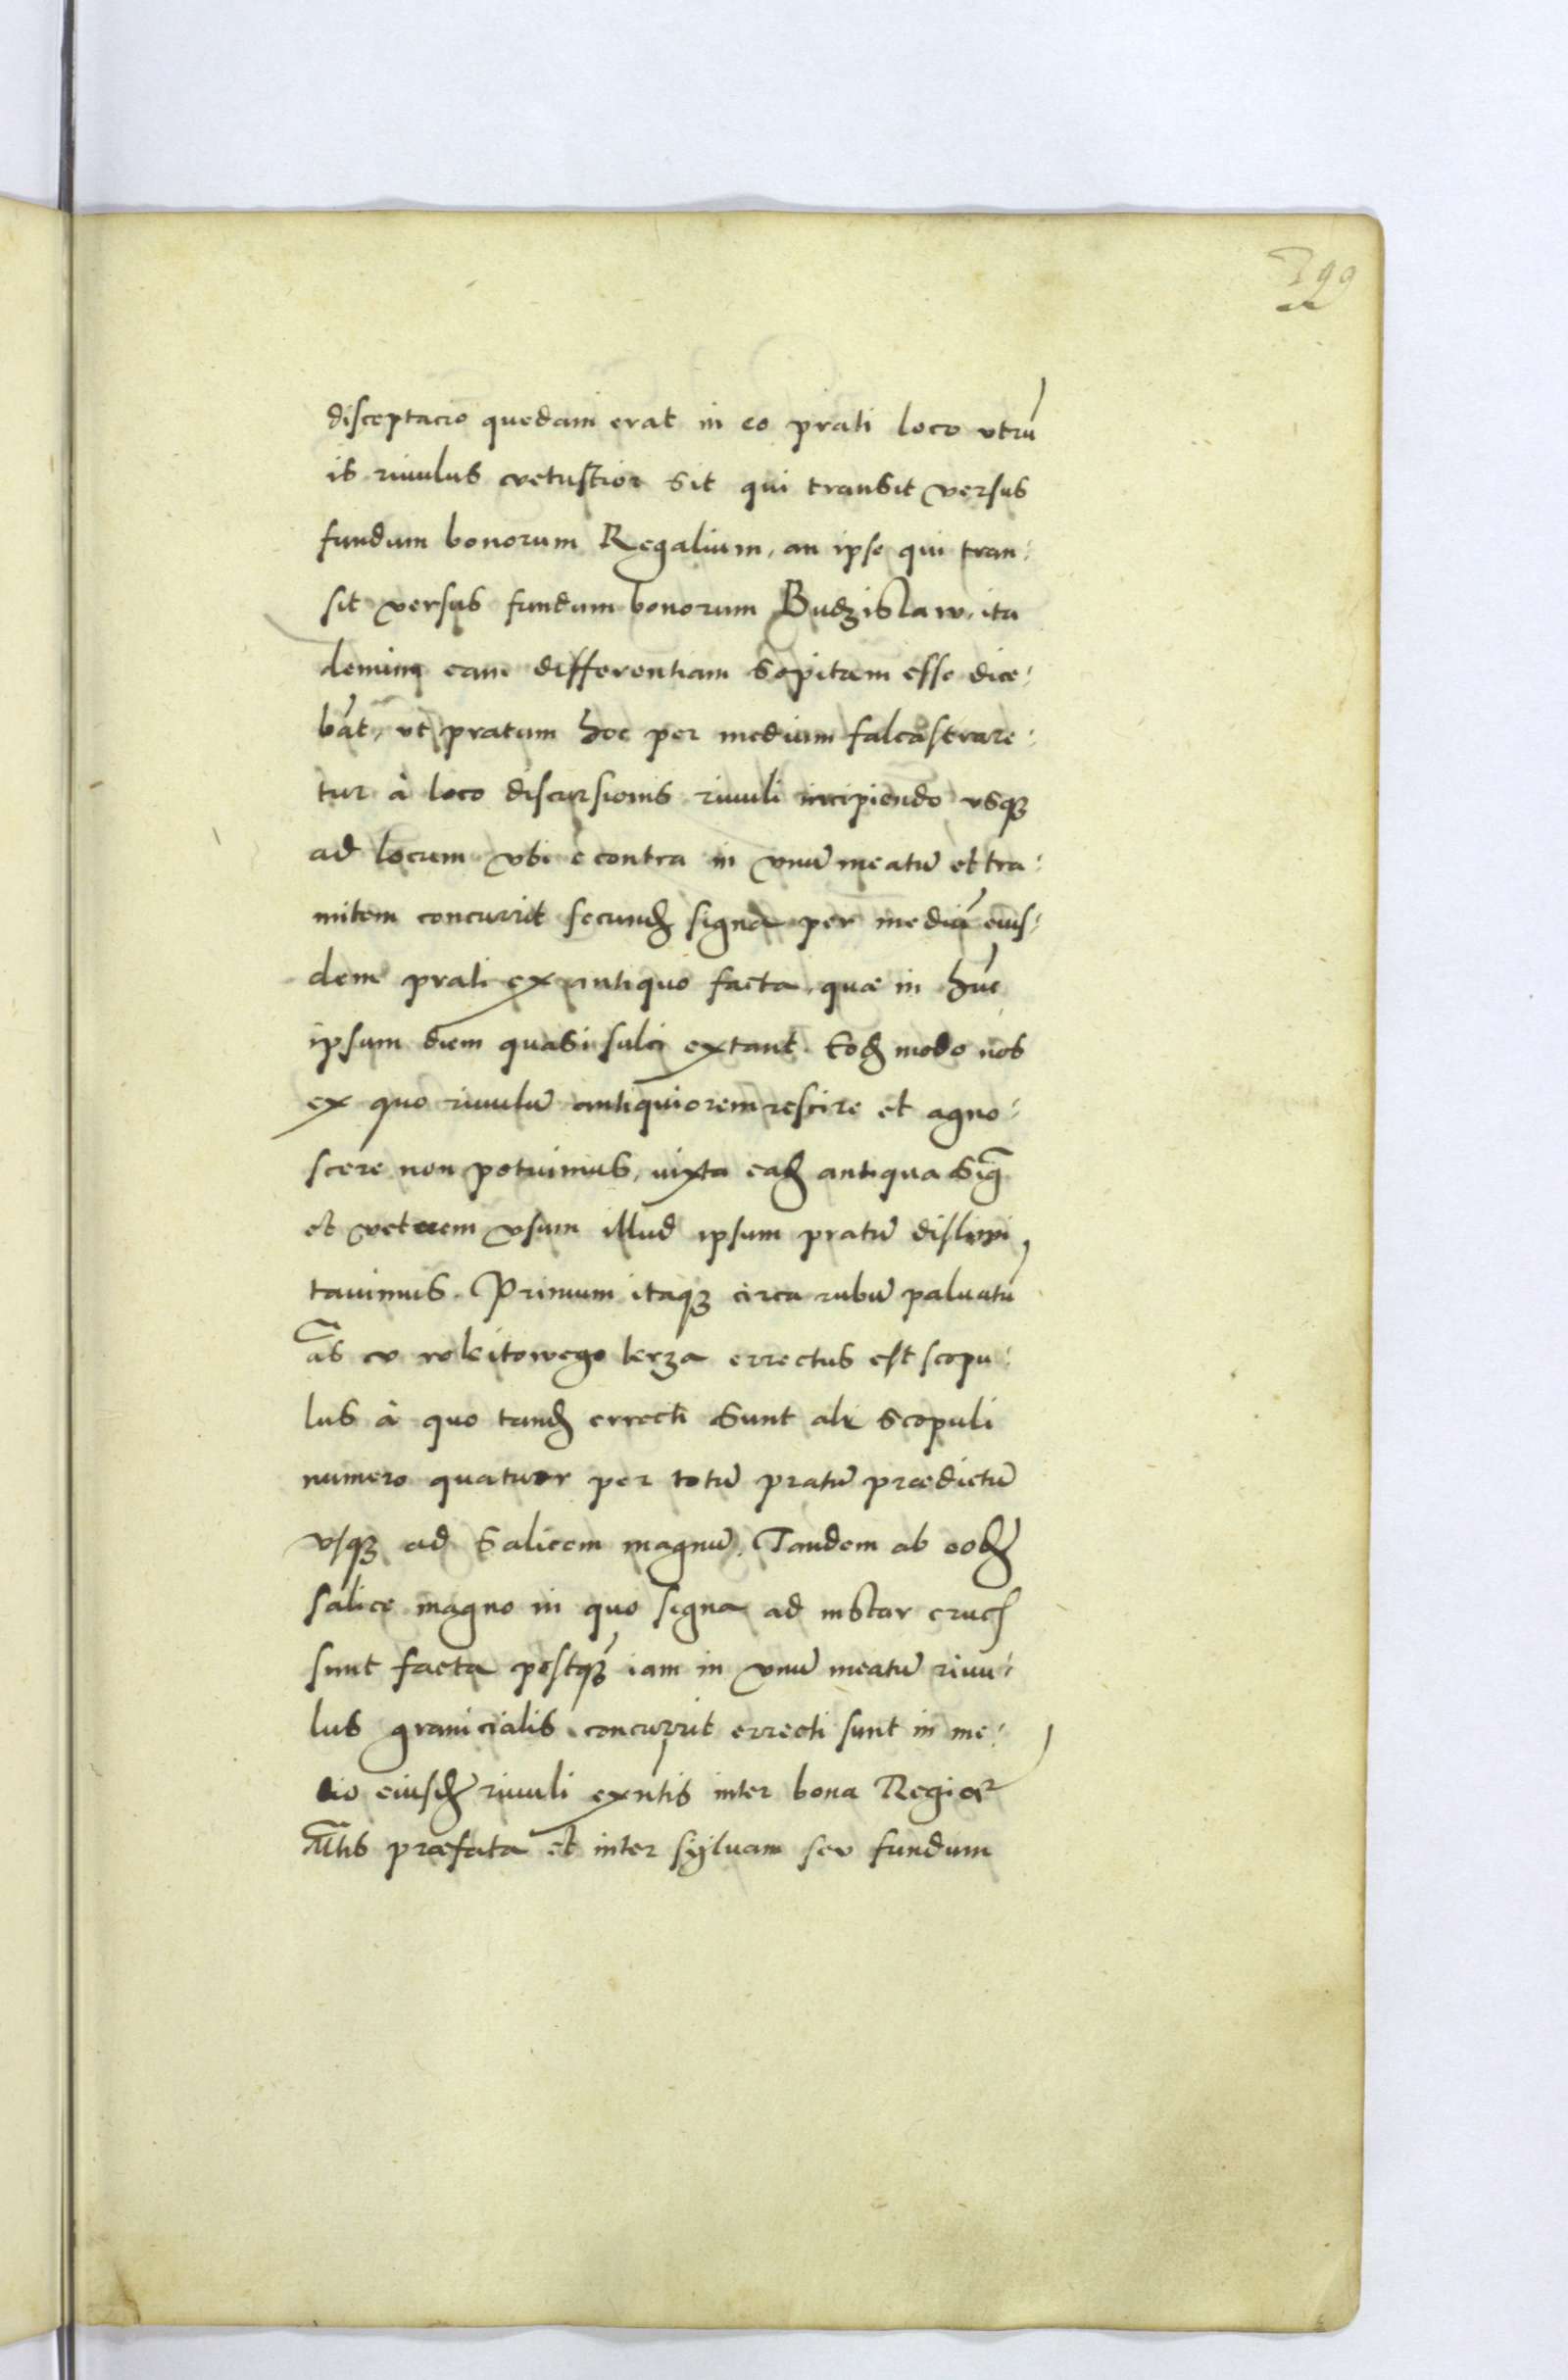 399
disceptacio quedam erat in eo prati loco vtrũ
is riuulus vetustior sit qui transit versus
fundum bonorum Regalium, an ipse qui tran:
sit versus fundum bonorum Budzislaw, ita
demum eam differentiam sopitam esse dice:
bãt, vt pratum hoc per medium falcastrare:
tur à loco discursionis riuuli incipiendo vsqꝫ
ad locum vbi e contra in vnũ meatũ et tra:
mitem concurrit secundꝫ signa per mediũ eius:
dem prati ex antiquo facta, quæ in hũc
ipsum diem quasi sulci extant. Eodꝫ modo nos
ex quo riuulũ antiquiorem rescire et agno:
scere non potuimus, iuxta eadꝫ antiqua sig̃
et veterem vsum illud ipsum pratũ dislimi
tauimus. Primum itaqꝫ circa rubũ paluatũ
als̃ v rokitowego kerza errectus est scopu:
lus à quo tandꝫ errecti sunt alii scopuli
numero quatuor per totũ pratũ prædictũ
vsqꝫ ad salicem magnũ. Tandem ab eodꝫ
salice magno in quo signa ad instar crucꝭ
sunt facta postqꝫ̃ iam in vnũ meatũ riuu:
lus granicialis concurrit errecti sunt in me:
dio eiusdꝫ riuuli exñtis inter bona Regiæ
M̃tis præfata et inter syluam seu fundum